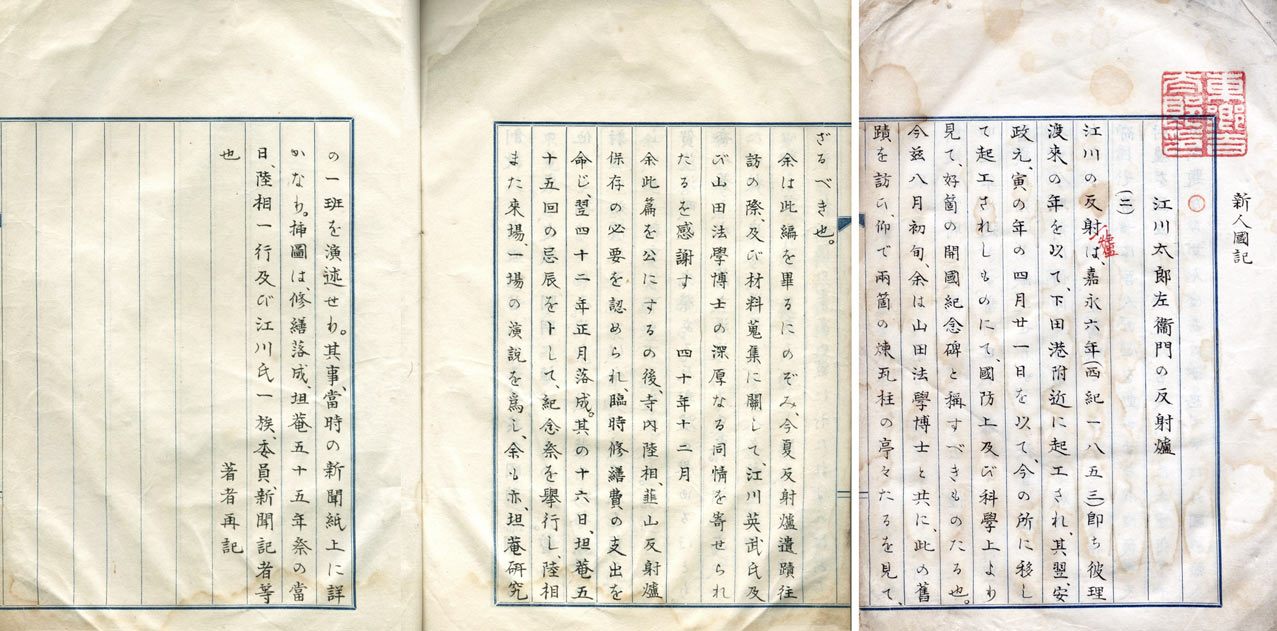 新人國記
江川太郎左衞門の反射爐
(二)
江川の反射爐は、嘉永六年(西紀一八五三)卽ち彼理
渡來の年を以て、下田港附近に起工され、其翌、安
政元、寅の年の四月廿一日を以て、今の所に移し
て起工されしものにて、國防上及び科學上より
見て、好箇の開國紀念碑と稱すべきものたる也。
今玆八月初旬、余は山田法學博士と共に、此の舊
蹟を訪ひ、仰で兩箇の煉瓦柱の亭々たるを見て、
ざるべき也。
余は此編を畢るにのぞみ、今夏反射爐遺蹟往
訪の際、及び材料蒐集に關して、江川英武氏及
び山田法學博士の深厚なる同情を寄せられ
たるを感謝す 四十年十二月
余此篇を公にするの後、寺內陸相、韮山反射爐
保存の必要を認められ、臨時修繕費の支出を
命じ、翌四十二年正月落成。其の十六日、坦菴五
十五回の忌辰をトして、紀念祭を擧行し、陸相
また來場、一場の演說を爲し、余も亦、坦菴硏究
の一班を演述せり。其事、當時の新聞紙上に詳
かなり。揷圖は、修繕落成、坦菴五十五年祭の當
日、陸相一行及び江川氏一族、委員、新聞記者等
也
著者再記